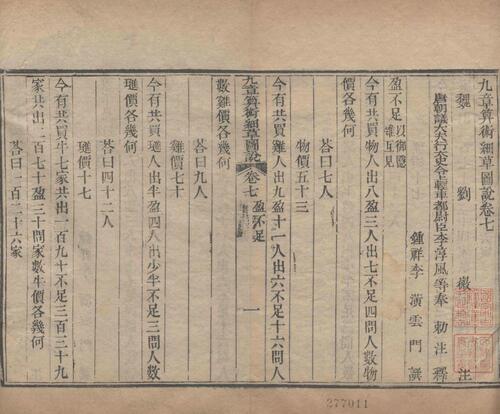 九章算術細草圖說卷七
魏 劉 徽 注
唐朝議大夫行太史令上輕車都尉臣李淳風等奉 勅注釋
鍾祥李 潢雲門譔
盈不足 以御隱雜互見
今有共買物人出八盈三人出七不足四問人數物
價各幾何
荅曰七人
物價五十三
今有共買雞人出九盈十一人出六不足十六問人
九章算術細草圖說 卷七 盈不足 一
數雞價各幾何
荅曰九人
雞價七十
今有共買璡人出半盈四人出少半不足三問人數
璡價各幾何
荅曰四十二人
璡價十七
今有共買牛七家共出一百九十不足三百三十九
家共出二百七十盈三十問家數牛價各幾何
荅曰一百二十六家
277011